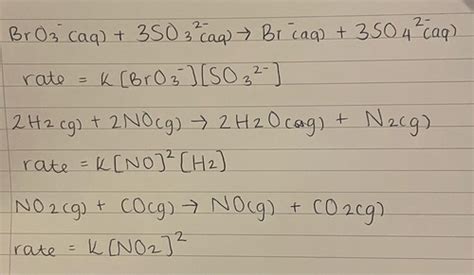 BrO₃⁻(aq) + 3SO₃²⁻(aq) → Br⁻(aq) + 3SO₄²⁻(aq)
rate = K[BrO₃⁻][SO₃²⁻]
2H₂(g) + 2NO(g) → 2H₂O(g) + N₂(g)
rate = K[NO]²[H₂]
NO₂(g) + CO(g) → NO(g) + CO₂(g)
rate = K[NO₂]²